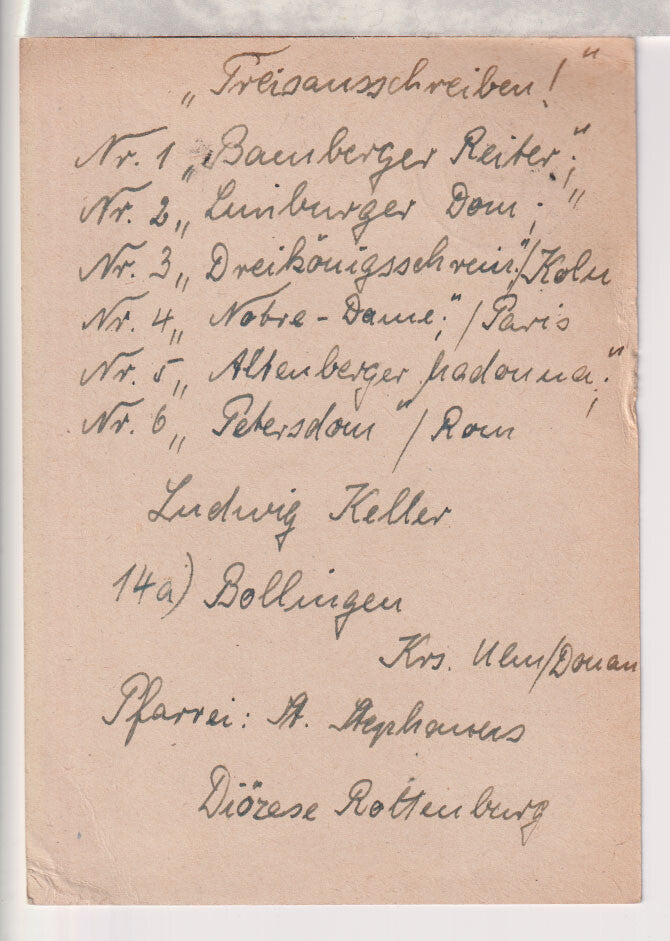 „Preisausschreiben!“
Nr. 1 „Bamberger Reiter“;
Nr. 2 „Limburger Dom“;
Nr. 3 „Dreikönigsschrein“/Köln
Nr. 4 „Notre-Dame“;/Paris
Nr. 5 „Altenberger Madonna“;
Nr. 6 „Petersdom“/Rom
Ludwig Keller
14a) Bollingen
Krs. Ulm/Donau
Pfarrei: St. Stephanus
Diözese Rottenburg